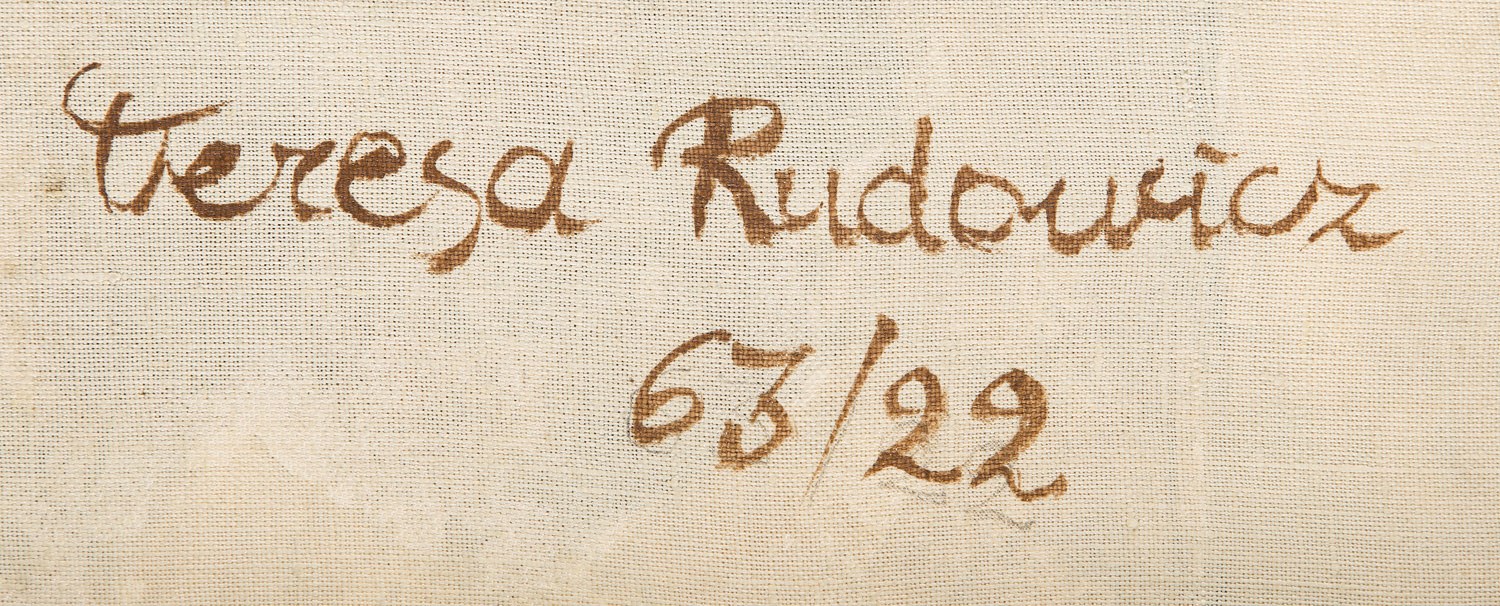 Teresa Rudowicz
63/22